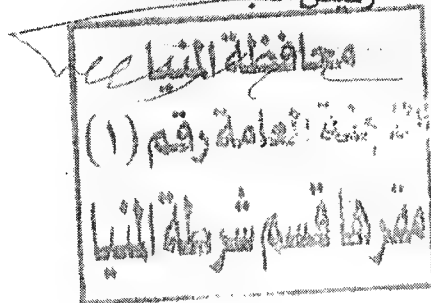 محافظة المنيا
اللجنة العامة رقم (١)
مقرها قسم شرطة المنيا